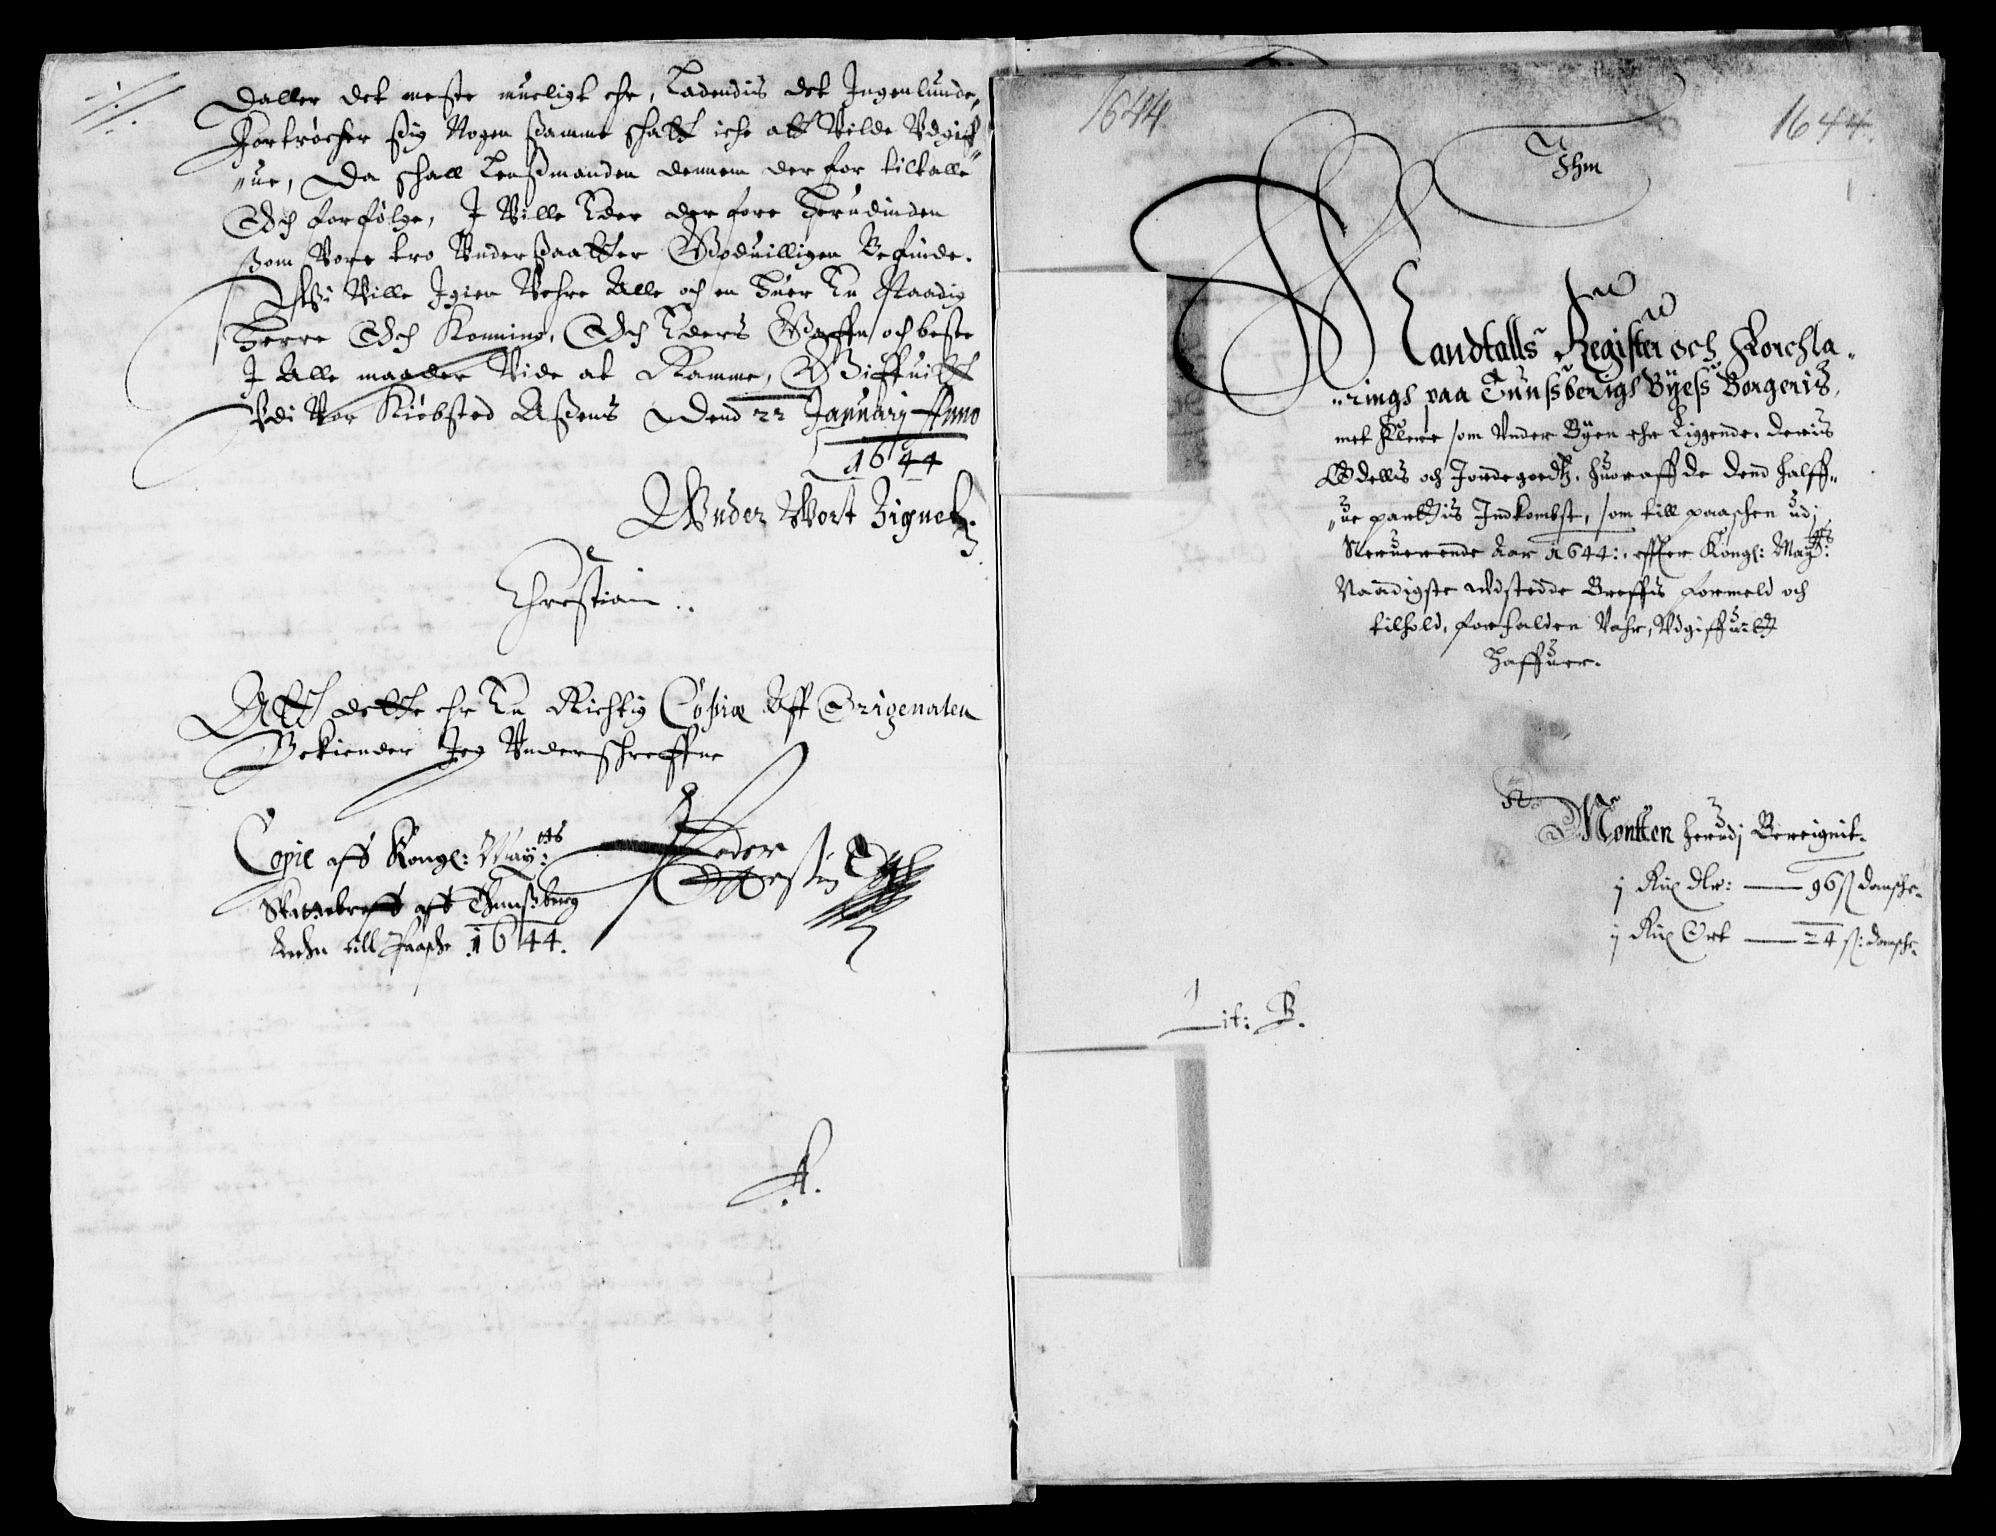 Daller det meste mueligt ehr, Ladendis det Ingenlunde„
Fortrøcher sig Nogen samme schatt iche att Wilde Udgiff„
„ue, Da schall Lenßmanden dennem der for tiltalle
Och forfølge, I Wille Eder der fore herudinden
ßom Vore tro Underßaatter Goduilligen Befinde.
Wi Wille Igien Vehre Alle och en huer En Naadig
Herre Och Konning, Och Eders Gaffn och beste
I Alle maader Vide at Ramme, Giffuitt
Udi Vor Kiøbsted Aßens Dend 22 January Anno
1644
Under Wort Zignetz.
Christian
Att dette ehr En Richtig Copie Aff Origenalen
Bekiender Jeg Underschreffne
Peder
Copie aff Kongl: Mayᵗᵗˢ:
Skattebreff aff Thunßberg
Lehn till Paasche 1644.
A.
1644
1644.
1
Ihm
Mandtalls Register och Forchla„
„rings paa Tunsberigs Byess Borgeris,
met Flere som Under Byen ehr Liggende. Deris
Odellis och Jordegoedz, huoraff de dend halff„
„ue partis Indkombst, som till paaschen udj
Neruerende Aar 1644:, effter Kongl: Mayᵗᵗˢ:
Naadigste udstedde Breffis formeld och
tilhold, forfalden Vahr, Udgiffuet
Haffuer.
Mønten herudj Beregnit.
j Rix dlr: — 96 ß danske.
j Rix Ort — 24 ß: danske.
Lit: B.